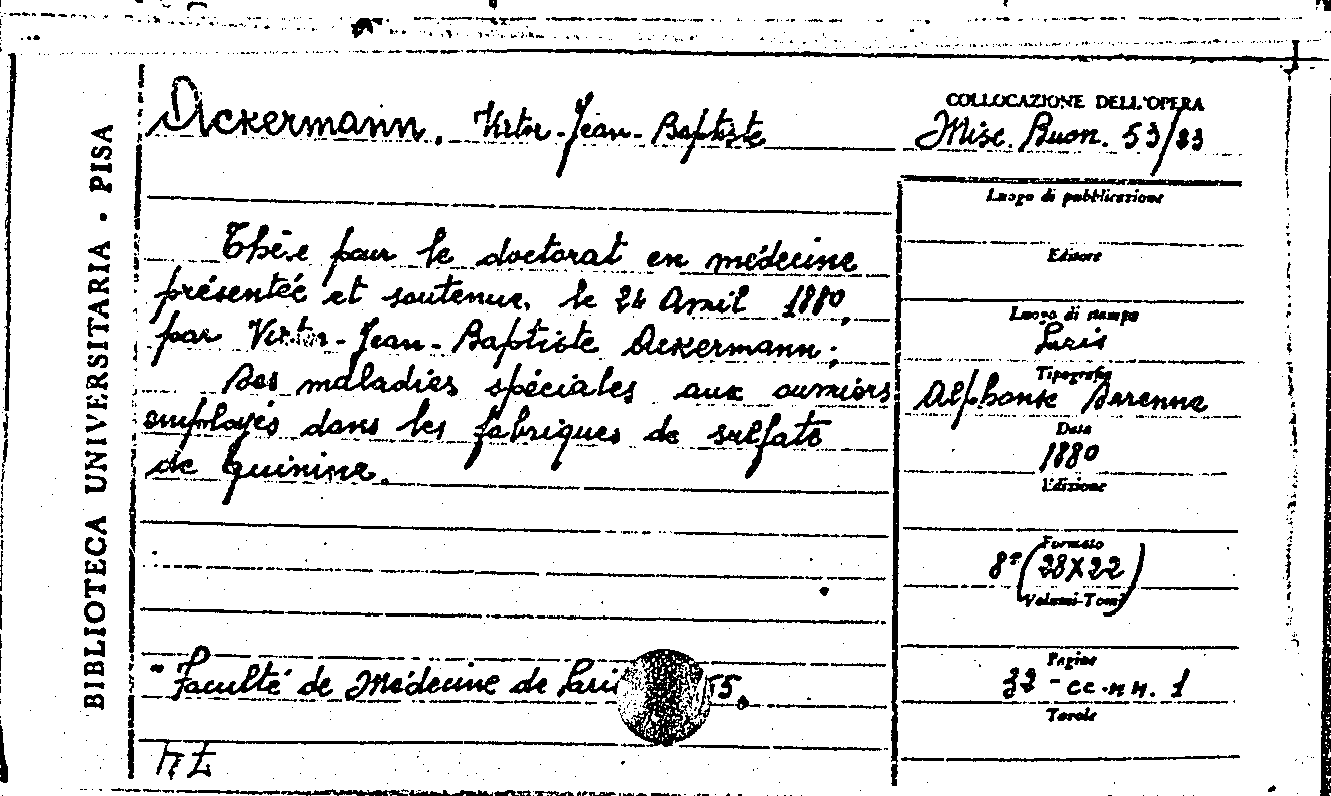 BIBLIOTECA UNIVERSITARIA · PISA
Ackermann, Victor-Jean-Baptiste
COLLOCAZIONE DELL'OPERA
Misc. Buon. 53/83
Luogo di pubblicazione
Editore
Luogo di stampa
Paris
Tipografia
Alphonse Derenne
Data
1880
Edizione
Formato
8° (28X22)
Volumi-Tomi
Pagine
cc.nn. 1
Tavole
Thèse pour le doctorat en médecine
présentée et soutenue, le 24 Avril 1880,
par Victor-Jean-Baptiste Ackermann;
Des maladies spéciales aux ouvriers
employés dans les fabriques de sulfate
de quinine.
"Faculté de Médecine de Paris